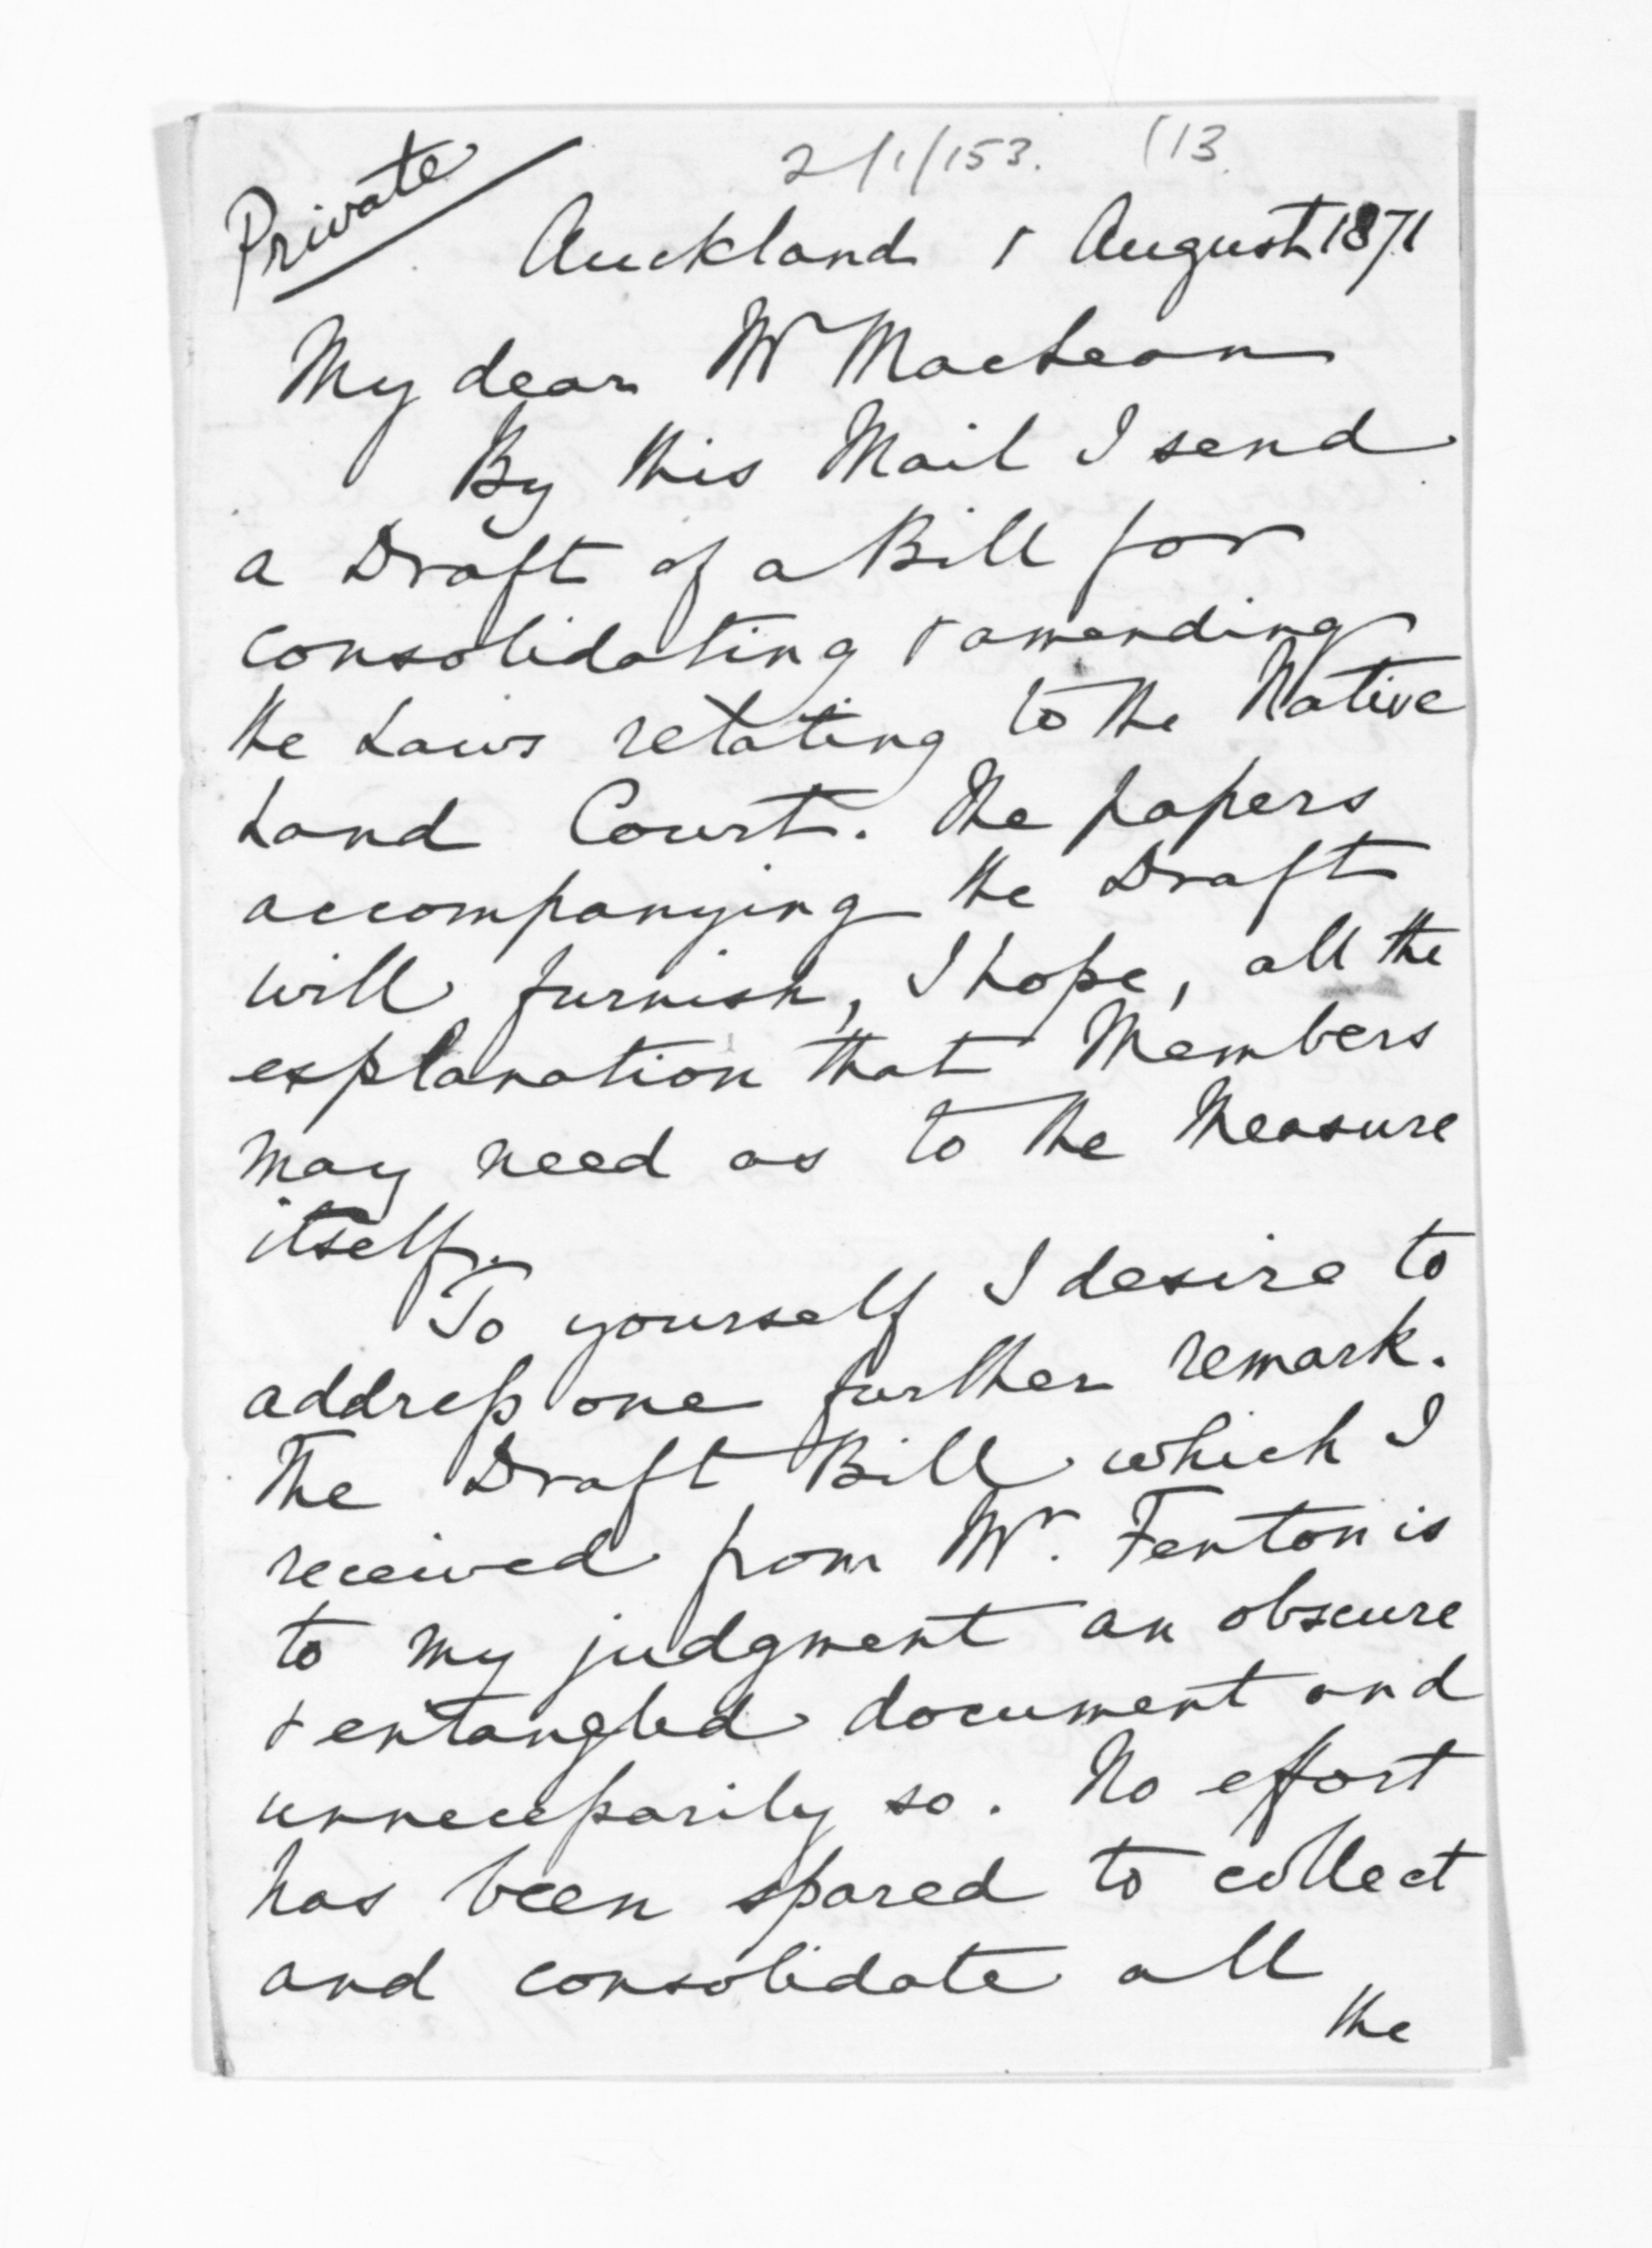 2/1/153. (13.
Private
Auckland 1 August 1871
My dear Mr MacLean
By this Mail I send
a Draft of a Bill for
consolidating & amending
the Laws relating to the Native
Land Court. The papers
accompanying the Draft
will furnish, I hope, all the
explanation that Members
may need as to the Measure
itself.
To yourself I desire to
address one further remark.
The Draft Bill which I
received from Mr. Fenton is
to my judgment an obscure
& entangled document and
unnecessarily so. No effort
has been spared to collect
and consolidate all
the